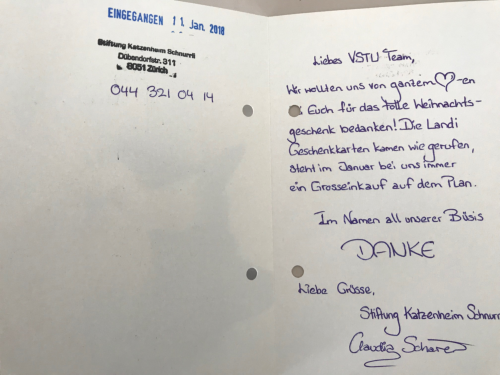 EINGEGANGEN 11. Jan. 2018
Stiftung Katzenheim Schnurrli
Dübendorfstr. 311
8051 Zürich
044 321 04 14
Liebes VSTU Team,
Wir wollten uns von ganzem ♡-en
Euch für das tolle Weihnachts-
geschenk bedanken! Die Landi
Geschenkkarten kamen wie gerufen,
steht im Januar bei uns immer
ein Grosseinkauf auf dem Plan.
Im Namen all unserer Büsis
DANKE
Liebe Grüsse,
Stiftung Katzenheim Schnurr
Claudia